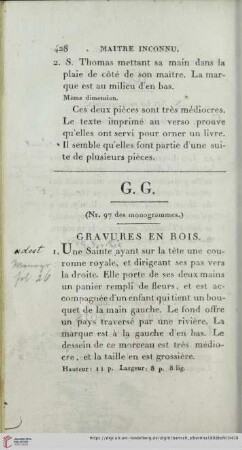 428 . MAITRE INCONNU.
2. S. Thomas mettant sa main dans la
plaie de côté de son maître. La mar-
que est au milieu d'en bas.
Même dimension.
Ces deux pièces sont très médiocres.
Le texte imprimé au verso prouve
qu'elles ont servi pour orner un livre.
Il semble qu'elles font partie d'une sui-
te de plusieurs pièces.
G. G.
(Nr. 97 des monogrammes.)
GRAVURES EN BOIS.
1. Une Sainte ayant sur la tête une cou-
ronne royale, et dirigeant ses pas vers
la droite. Elle porte de ses deux mains
un panier rempli de fleurs, et est ac-
compagnée d'un enfant qui tient un bou-
quet de la main gauche. Le fond offre
un pays traversé par une rivière. La
marque est à la gauche d'en bas. Le
dessein de ce morceau est très médio-
cre, et la taille en est grossière.
Hauteur: 11 p. Largeur: 8 p. 8 lig.